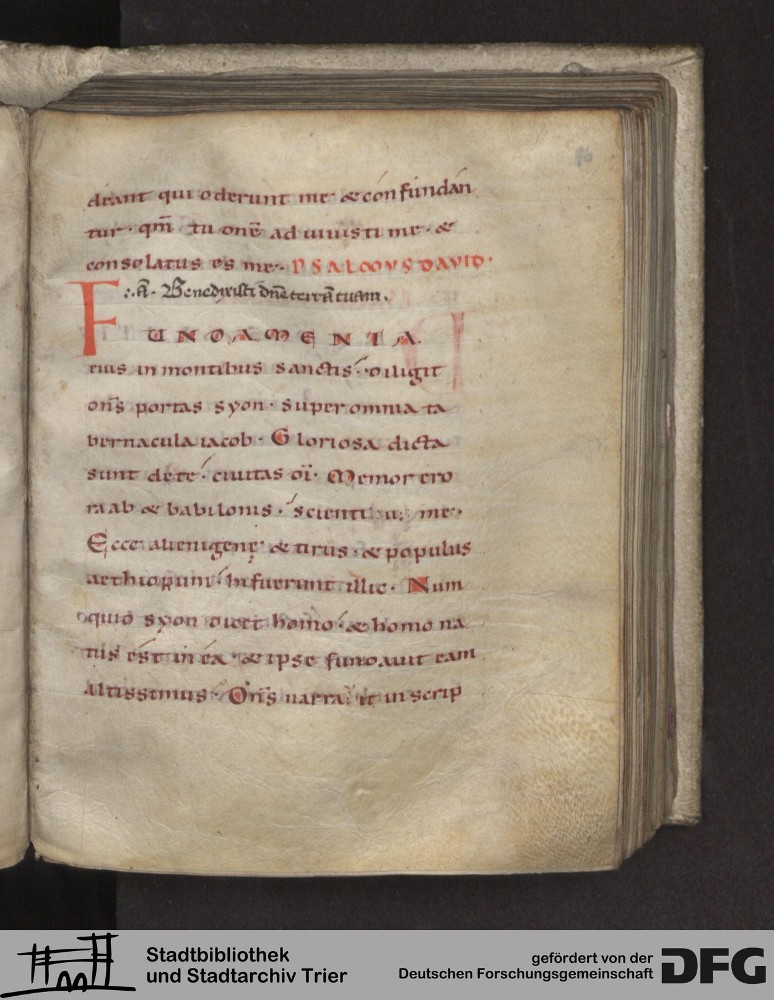 96
deant qui oderunt me · & confundan
tur · qm̄ tu dnē adiuuisti me · &
consolatus es me · PSALMVS DAVID ·
Ā · Benedixisti dn̄e terrā tuam .
FUNDAMENTA
eius in montibus sanctis · diligit
dn̄s portas syon · super omnia ta
bernacula iacob · Gloriosa dicta
sunt de te · ciuitas dī · Memor ero
raab & babilonis · scientiū me ·
Ecce alienigenę · & tirus · & populus
aethiopum · hi fuerunt illic · Num
quid syon dicet homo · & homo na
tus est in ea · & ipse fundauit eam
altissimus · Dn̄s narrabit in scrip
Stadtbibliothek
und Stadtarchiv Trier
gefördert von der
Deutschen Forschungsgemeinschaft
DFG